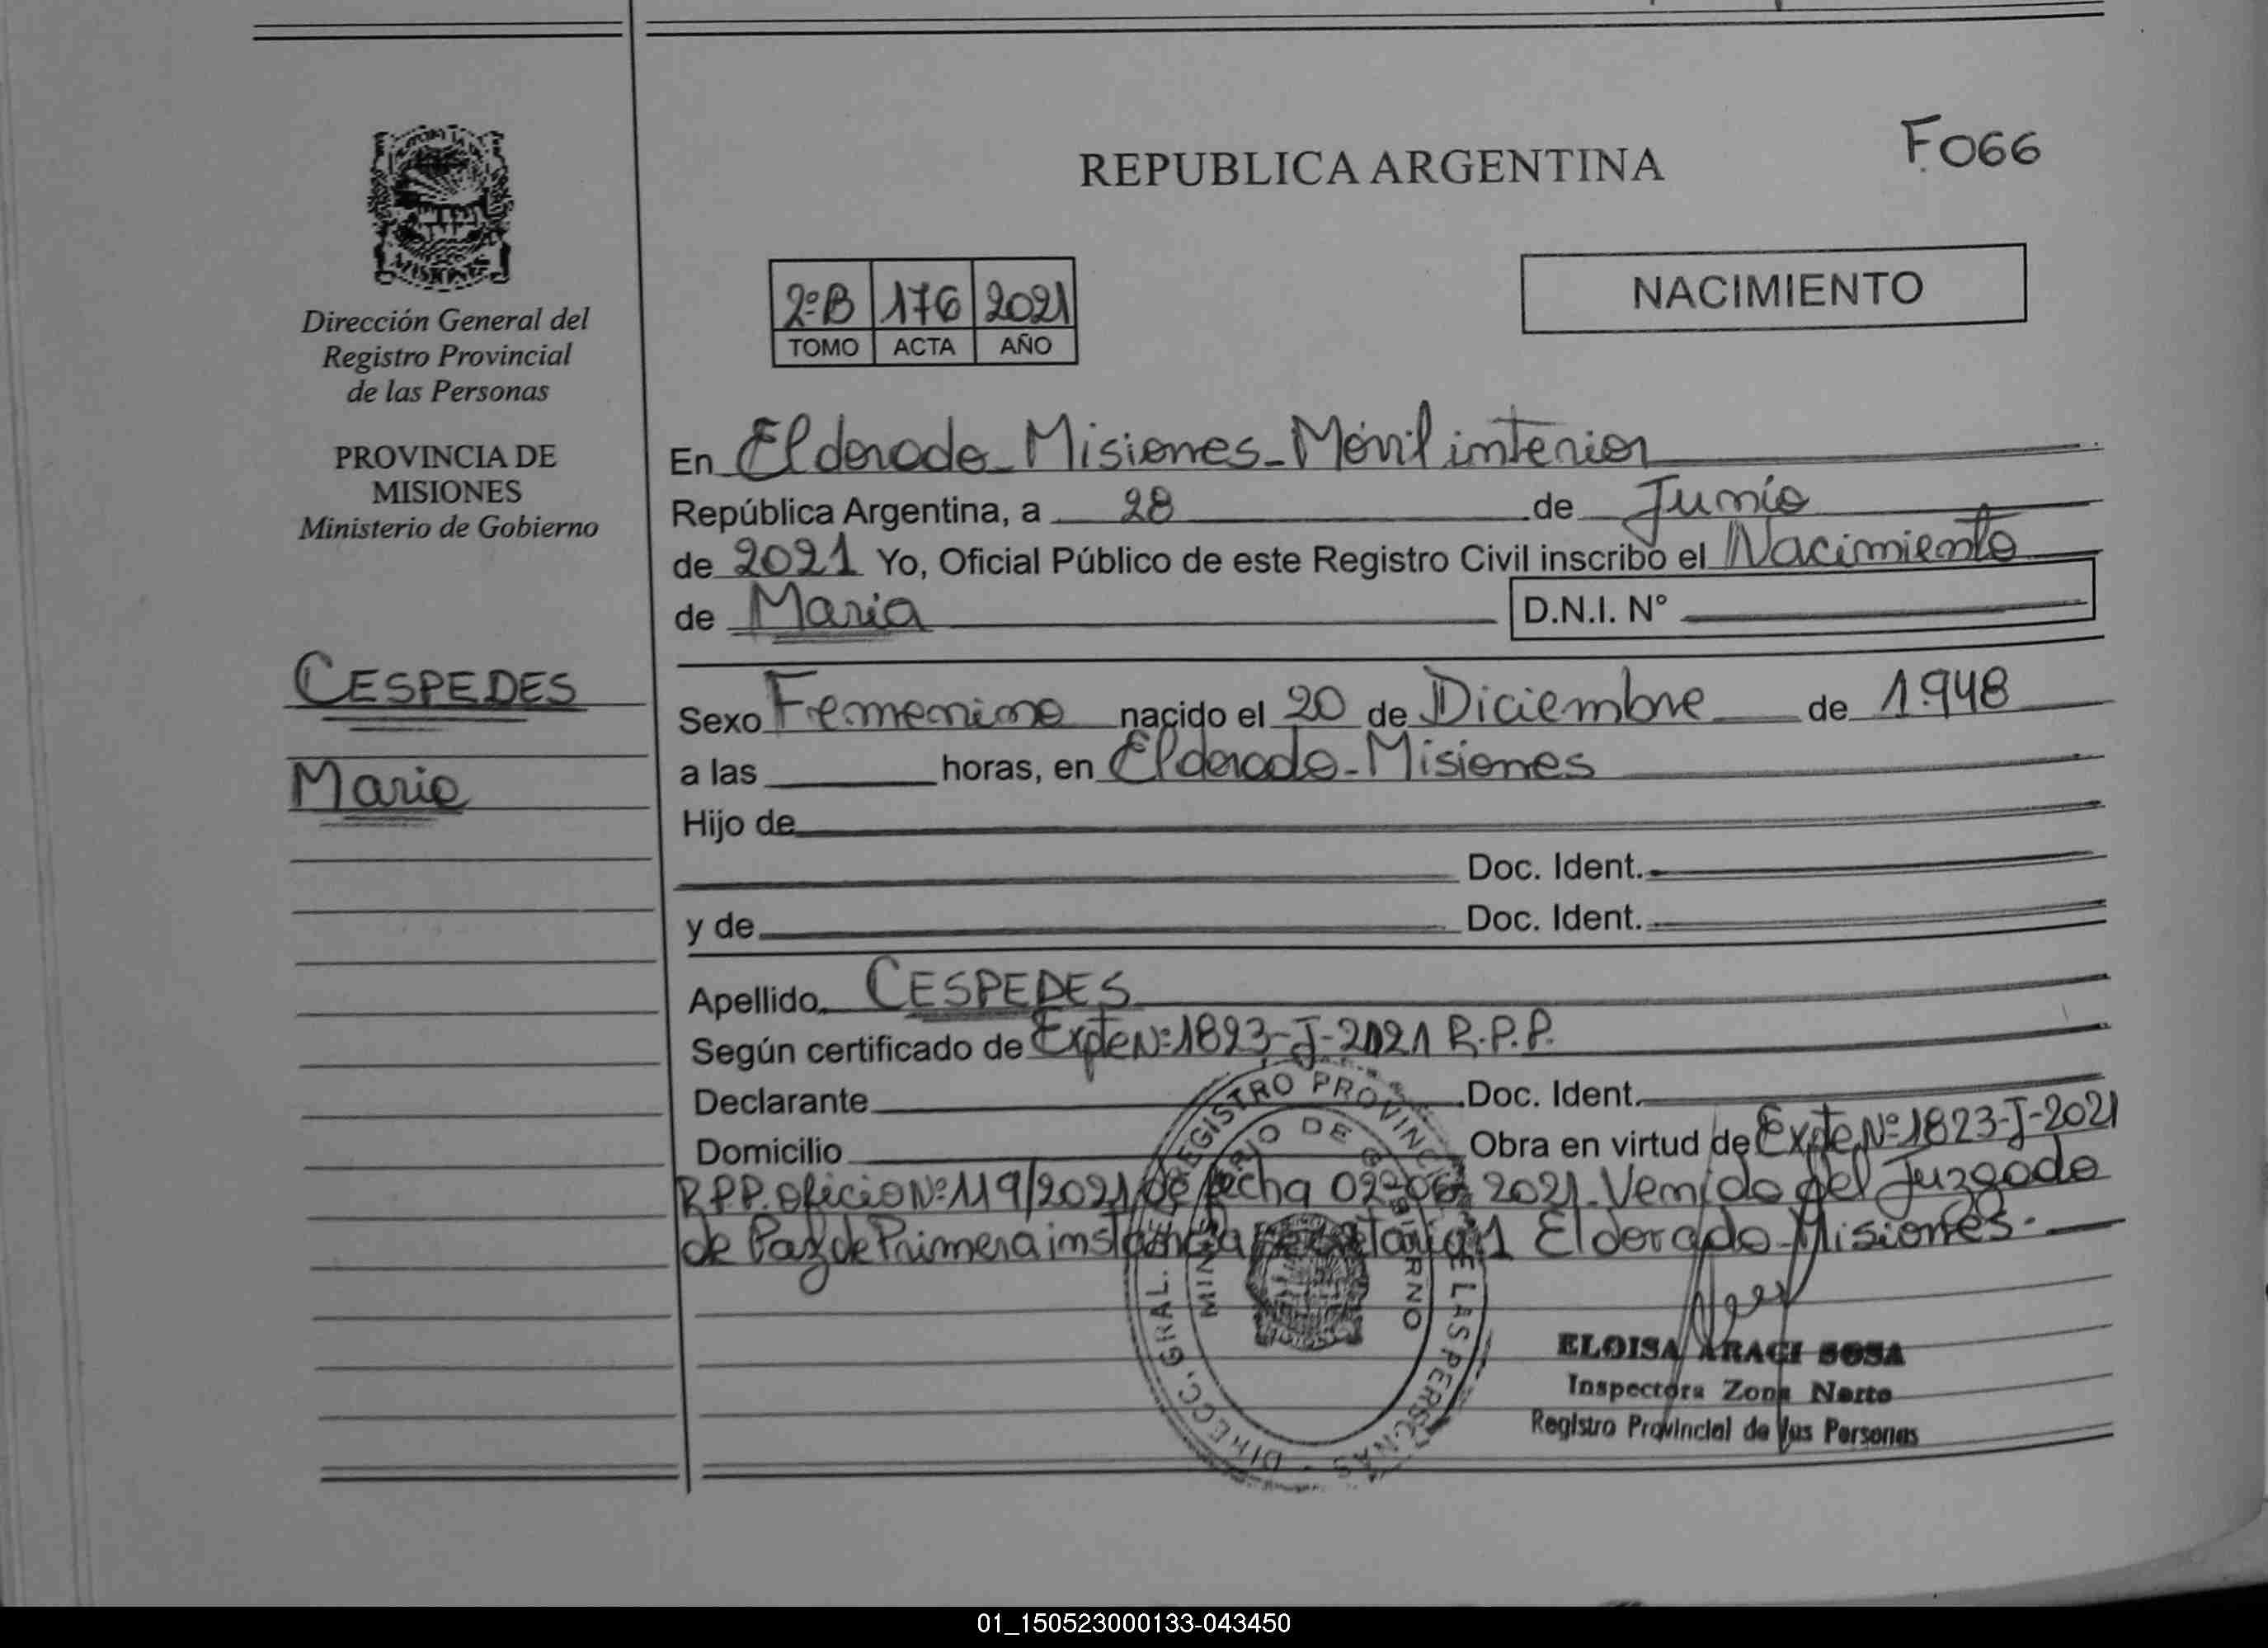 F066
REPUBLICA ARGENTINA
NACIMIENTO
2º B 176 2021
TOMO ACTA AÑO
MISIONES
Dirección General del
Registro Provincial
de las Personas
PROVINCIA DE
MISIONES
Ministerio de Gobierno
CESPEDES
Maria
En Eldorado - Misiones - Móvil interior
República Argentina, a 28 de Junio
de 2021 Yo, Oficial Público de este Registro Civil inscribo el Nacimiento
de Maria D.N.I. N°
Sexo Femenino nacido el 20 de Diciembre de 1.948
a las horas, en Eldorado - Misiones
Hijo de
Doc. Ident.
y de Doc. Ident.
Apellido CESPEDES
Según certificado de Expte Nº 1823-J-2021 R.P.P.
Declarante Doc. Ident.
Domicilio Obra en virtud de Expte Nº 1823-J-2021
R.P.P. oficio Nº 119/2021 de fecha 02-06-2021. Venido del Juzgado
de Paz de Primera instancia secretaria 1 Eldorado - Misiones.
DIRECC. GRAL. DE REGISTRO PROVINCIAL DE LAS PERSONAS
MINISTERIO DE GOBIERNO
ELOISA ARACI SOSA
Inspectora Zona Norte
Registro Provincial de las Personas
01_150523000133-043450